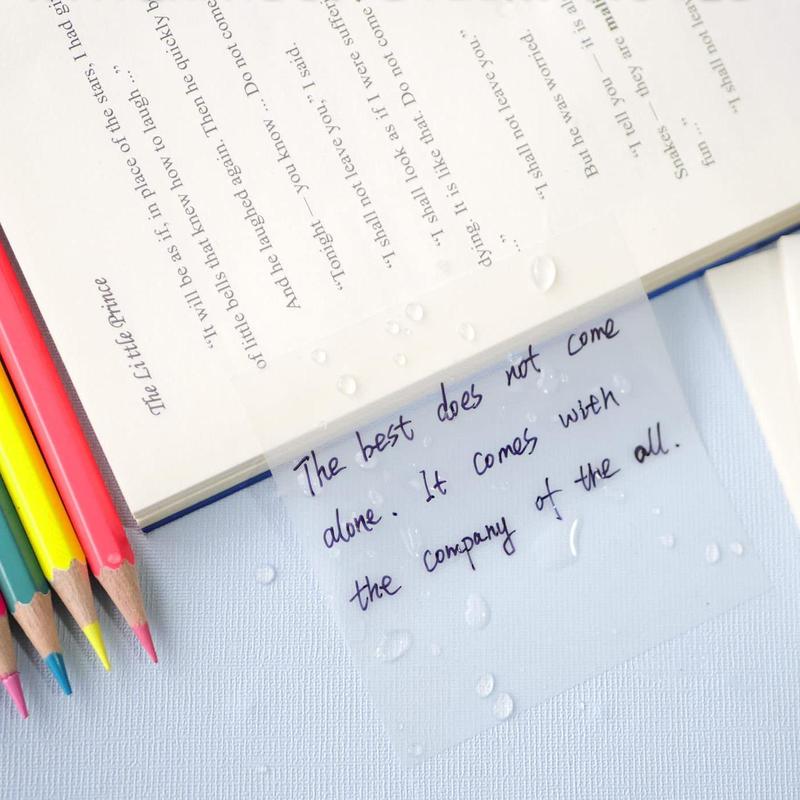 The Little Prince
"It will be as if, in place of the stars, I had gi
of little bells that knew how to laugh ..."
And he laughed again. Then he quickly b
"Tonight — you know ... Do not come
"I shall not leave you," I said.
"I shall look as if I were suffer
dying. It is like that. Do not come
..."
"I shall not leave you."
But he was worried.
"I tell you — it is al
Snakes — they are mali
fun ..."
"I shall not leav
The best does not come
alone. It comes with
the company of the all.